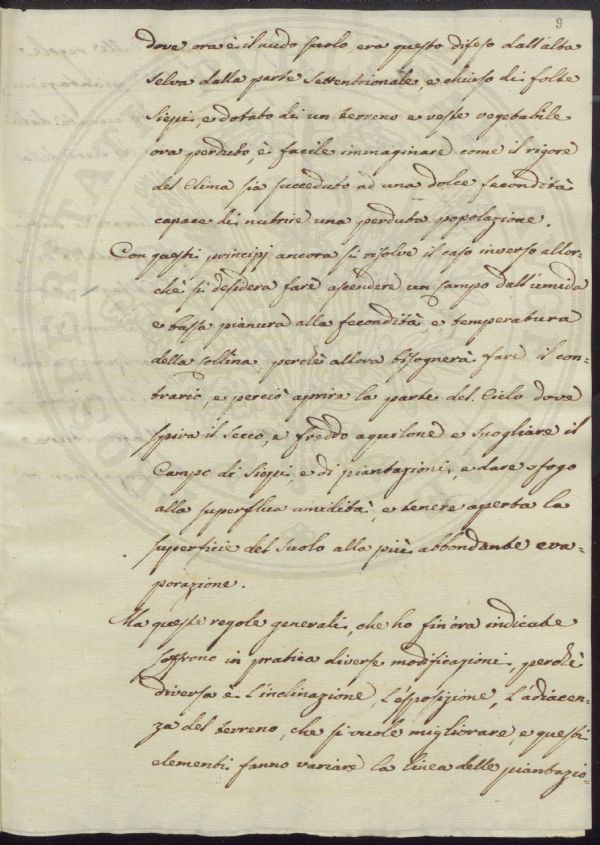 9
dove ora è il nudo suolo, era questo difeso dall'alta
selva dalla parte settentrionale e chiuso di folte
siepi, e dotato di un terreno e veste vegetabile
ora perduto è facile immaginare come il rigore
del Clima sia succeduto ad una dolce fecondità
capace di nutrire una perduta popolazione.
Con questi principj ancora si risolve il caso inverso allor-
chè si desidera fare ascendere un campo dall'umida
e bassa pianura alla fecondità, e temperatura
della collina, perchè allora bisognerà fare il con-
trario, e perciò aprire la parte del Cielo dove
spira il secco, e freddo aquilone e spogliare il
Campo di siepi, e di piantazioni, e dare sfogo
alla superflua umidità, e tenere aperta la
superficie del suolo alla più abbondante eva-
porazione.
Ma queste regole generali, che ho fin'ora indicate
soffrono in pratica diverse modificazioni, perchè
diversa è l'inclinazione, l'esposizione, l'adiacen-
za del terreno, che si vuole migliorare, e questi
elementi fanno variare la linea delle piantazio-